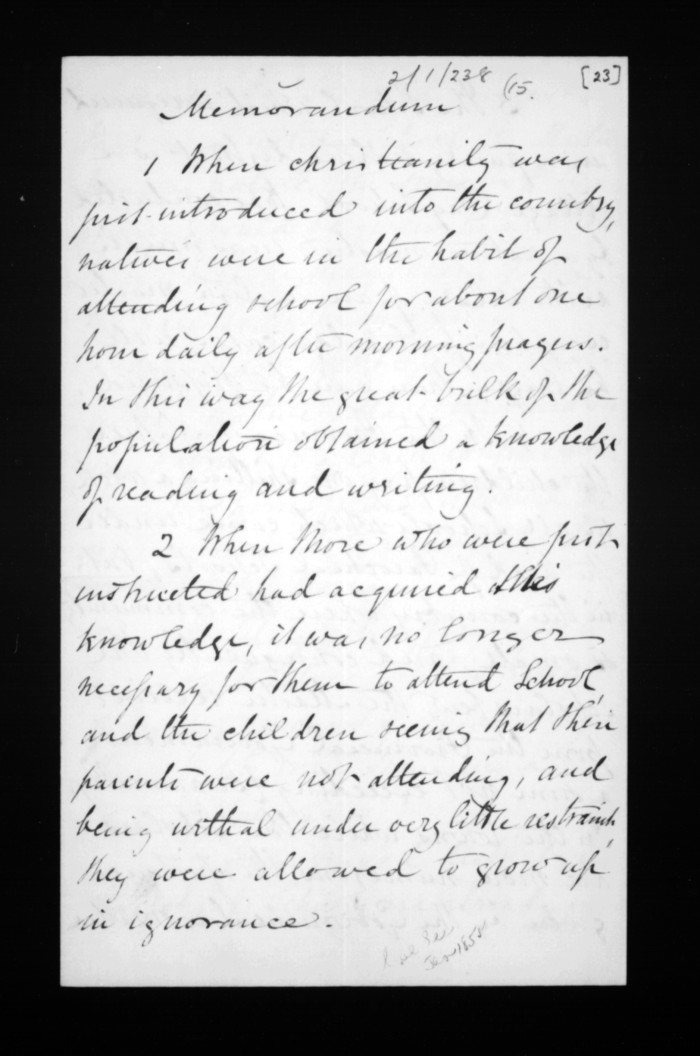 2/1/238 (15.
[23]
Memorandum
1 When christianity was
first introduced into the country,
natives were in the habit of
attending school for about one
hour daily after morning prayers.
In this way the great bulk of the
population obtained a knowledge
of reading and writing.
2 When those who were first
instructed had acquired this
knowledge, it was no longer
necessary for them to attend School,
and the children seeing that their
parents were not attending, and
being withal under very little restraint,
they were allowed to grow up
in ignorance.
Jan 1858